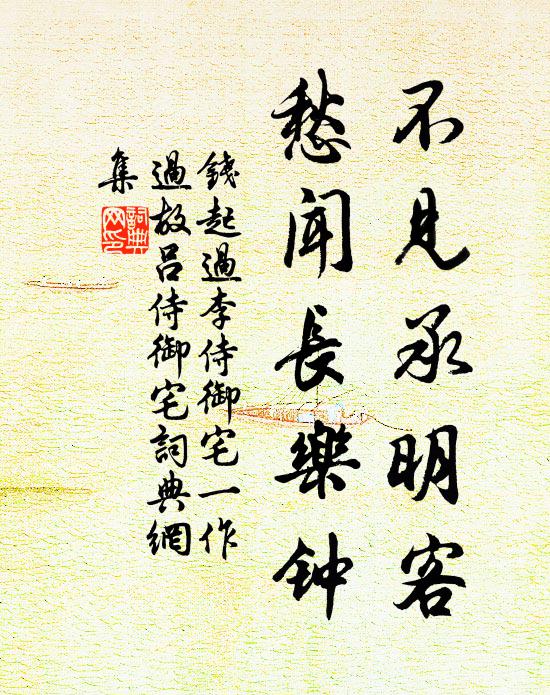 不見承明客
愁聞長樂钟
錢起過李侍御宅一作
過故吕侍御宅詞典網
集
詞典
网印